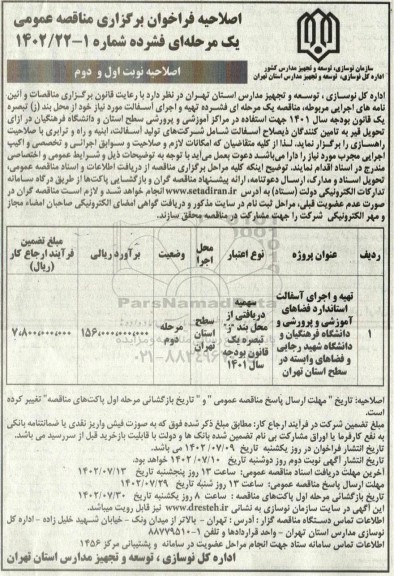 اصلاحیه فراخوان برگزاری مناقصه عمومی
یک مرحله‌ای فشرده شماره ۱-۱۴۰۲/۲۲
سازمان نوسازی، توسعه و تجهیز مدارس کشور
اداره کل نوسازی، توسعه و تجهیز مدارس استان تهران
اصلاحیه نوبت اول و دوم
اداره کل نوسازی ، توسعه و تجهیز مدارس استان تهران در نظر دارد با رعایت قانون برگزاری مناقصات و آئین
نامه های اجرایی مربوطه، مناقصه یک مرحله ای فشرده تهیه و اجرای آسفالت مورد نیاز خود از محل بند (ز) تبصره
یک قانون بودجه سال ۱۴۰۱ جهت استفاده در مراکز آموزشی و پرورشی سطح استان و دانشگاه فرهنگیان در ازای
تحویل قیر به تامین کنندگان ذیصلاح آسفالت شامل شرکت‌های تولید آسفالت، ابنیه و راه و ترابری با صلاحیت
راهسازی را برگزار نماید. لذا از کلیه متقاضیان که امکانات لازم و صلاحیت و سوابق اجرائی و تخصصی و اکیپ
اجرایی مجرب مورد نیاز را دارا می‌باشند دعوت بعمل می‌آید با توجه به توضیحات ذیل و شرایط عمومی و اختصاصی
مندرج در اسناد اقدام نمایند. توضیح اینکه کلیه مراحل برگزاری مناقصه از دریافت اطلاعات و اسناد مناقصه عمومی،
تحویل اسناد و مدارک، ارسال دعوتنامه، ارائه پیشنهاد مناقصه گران و بازگشایی پاکت‌ها از طریق درگاه سامانه
تدارکات الکترونیکی دولت (ستاد) به آدرس www.setadiran.ir انجام خواهد شد و لازم است مناقصه گران در
صورت عدم عضویت قبلی، مراحل ثبت نام در سایت مذکور و دریافت گواهی امضای الکترونیکی صاحبان امضاء مجاز
و مهر الکترونیکی شرکت را جهت مشارکت در مناقصه محقق سازند.
ردیف عنوان پروژه نوع اعتبار محل اجرا وضعیت برآورد ریالی مبلغ تضمین فرآیند ارجاع کار (ریال)
۱ تهیه و اجرای آسفالت استاندارد فضاهای آموزشی و پرورشی و دانشگاه فرهنگیان و دانشگاه شهید رجایی و فضاهای وابسته در سطح استان تهران سهمیه دریافتی از محل بند "ز" تبصره یک قانون بودجه سال ۱۴۰۱ سطح استان تهران مرحله دوم ۱۵۶,۰۰۰,۰۰۰,۰۰۰ ۷,۸۰۰,۰۰۰,۰۰۰
ParsNamadData
اصلاحیه: تاریخ " مهلت ارسال پاسخ مناقصه عمومی " و " تاریخ بازگشائی مرحله اول پاکت‌های مناقصه" تغییر کرده
است.
مبلغ تضمین شرکت در فرآیند ارجاع کار: مطابق مبلغ ذکر شده فوق که به صورت فیش واریز نقدی یا ضمانتنامه بانکی
به نفع کارفرما یا اوراق مشارکت بی نام تضمین شده بانک ها و دولت با قابلیت بازخرید قبل از سررسید می باشد.
تاریخ انتشار فراخوان در روز یکشنبه تاریخ ۱۴۰۲/۰۷/۰۹ می باشد.
تاریخ انتشار آگهی نوبت دوم روز دوشنبه تاریخ ۱۴۰۲/۰۷/۱۰ خواهد بود.
آخرین مهلت دریافت اسناد مناقصه عمومی: ساعت ۱۳ روز پنجشنبه تاریخ ۱۴۰۲/۰۷/۱۳
مهلت ارسال پاسخ مناقصه عمومی: ساعت ۱۳ روز شنبه تاریخ ۱۴۰۲/۰۷/۲۹
تاریخ بازگشائی مرحله اول پاکت‌های مناقصه : ساعت ۸ روز یکشنبه تاریخ ۱۴۰۲/۰۷/۳۰
این آگهی در سایت سازمان نوسازی به نشانی www.dresteh.ir نیز قابل رویت می‌باشد.
اطلاعات تماس دستگاه مناقصه گزار : آدرس : تهران - بالاتر از میدان ونک - خیابان شهید خلیل زاده - اداره کل
نوسازی مدارس استان تهران - واحد قراردادها و تلفن ۱-۸۸۷۷۹۵۱۰
اطلاعات تماس سامانه ستاد جهت انجام مراحل عضویت در سامانه و پشتیبانی مرکز ۱۴۵۶
اداره کل نوسازی ، توسعه و تجهیز مدارس استان تهران